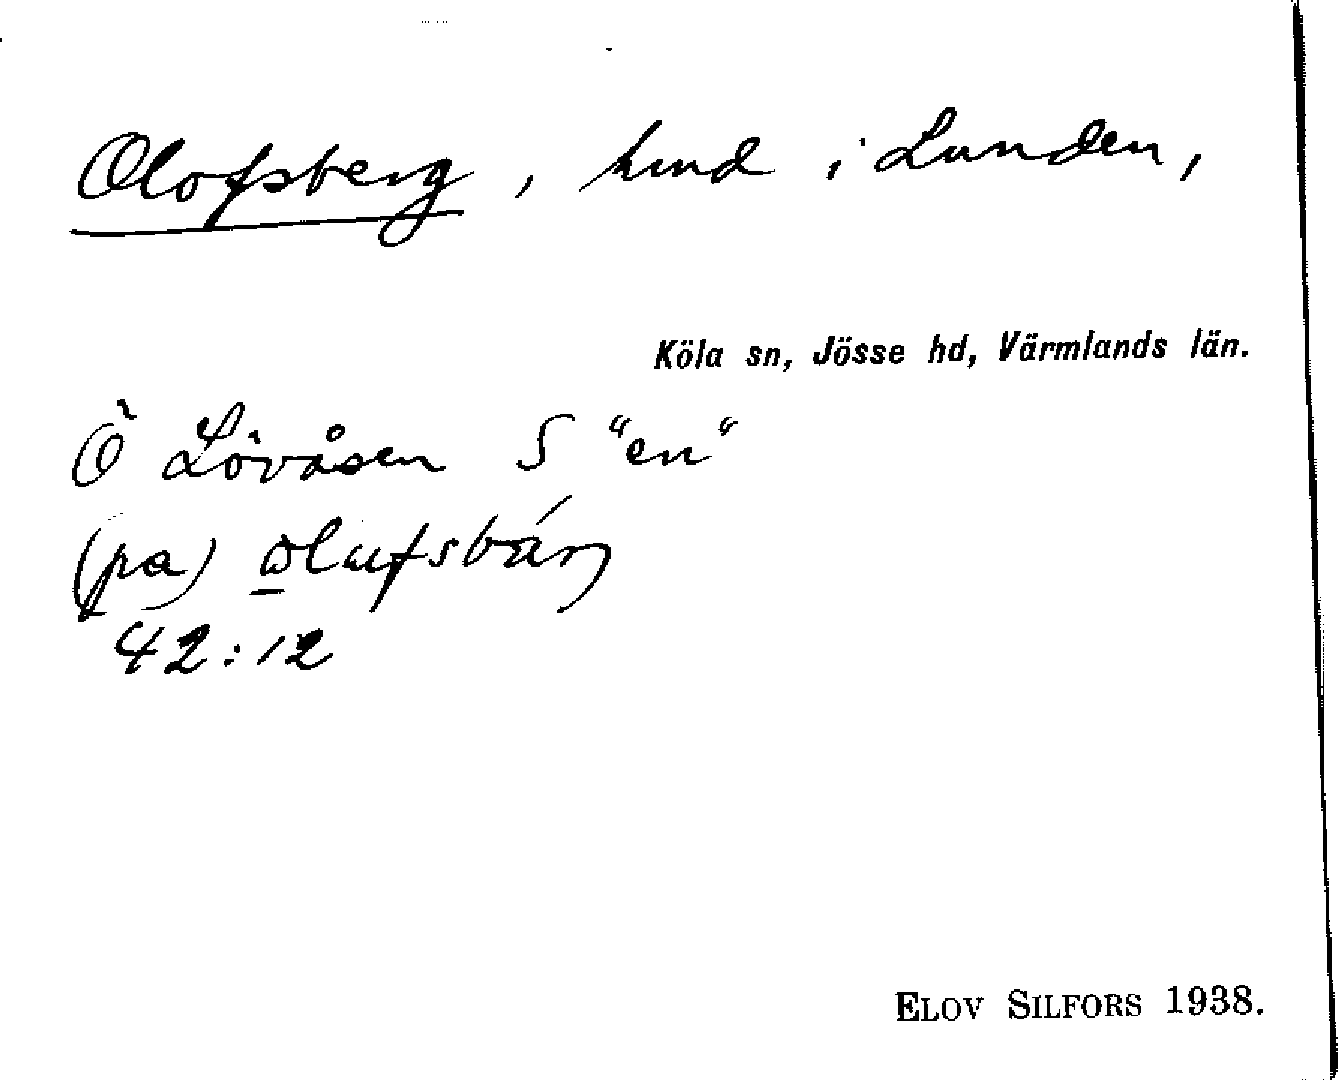 Olofsberg, hmd i Lunden,
Köla sn, Jösse hd, Värmlands län.
Ö Lövåsen S "en"
(pa) òlufsbárj
42:12
ELOV SILFORS 1938.